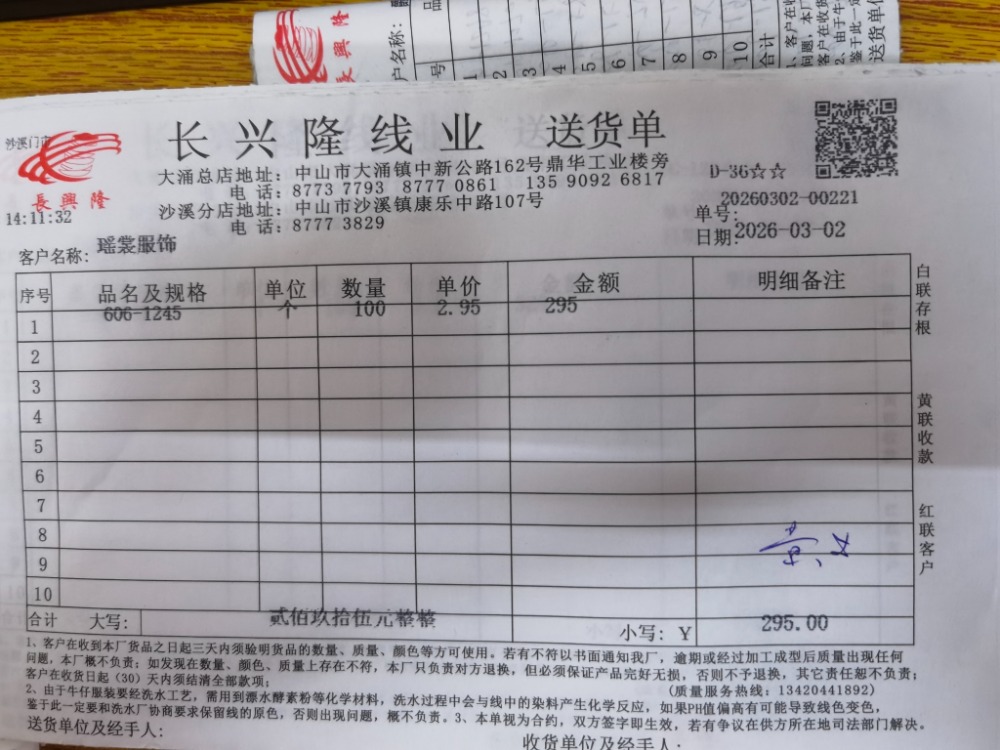 長興隆
户名称:
品
号
1
2
3
4
5
6
7
8
9
10
合计
送货单位
沙溪门市
長興隆
14:11:32
长兴隆线业 送货单
大涌总店地址: 中山市大涌镇中新公路162号鼎华工业楼旁
电 话: 8773 7793 8777 0861 135 9092 6817
沙溪分店地址: 中山市沙溪镇康乐中路107号
电 话: 8777 3829
D-36☆☆
20260302-00221
单号:
日期: 2026-03-02
客户名称: 瑶裳服饰
序号 品名及规格 单位 数量 单价 金额 明细备注
1 606-1245 个 100 2.95 295
2
3
4
5
6
7
8
9
10
合计 大写: 贰佰玖拾伍元整整 小写: ¥ 295.00
白联存根
黄联收款
红联客户
1、客户在收到本厂货品之日起三天内须验明货品的数量、质量、颜色等方可使用。若有不符以书面通知我厂,逾期或经过加工成型后质量出现任何
问题,本厂概不负责;如发现在数量、颜色、质量上存在不符,本厂只负责对方退换,但必须保证产品完好无损,否则不予退换,其它责任恕不负责;
客户在收货日起(30)天内须结清全部款项; (质量服务热线: 13420441892)
2、由于牛仔服装要经洗水工艺,需用到漂水酵素粉等化学材料,洗水过程中会与线中的染料产生化学反应,如果PH值偏高有可能导致线色变色,
鉴于此一定要和洗水厂协商要求保留线的原色,否则出现问题,概不负责。3、本单视为合约,双方签字即生效,若有争议在供方所在地司法部门解决。
送货单位及经手人:
收货单位及经手人: